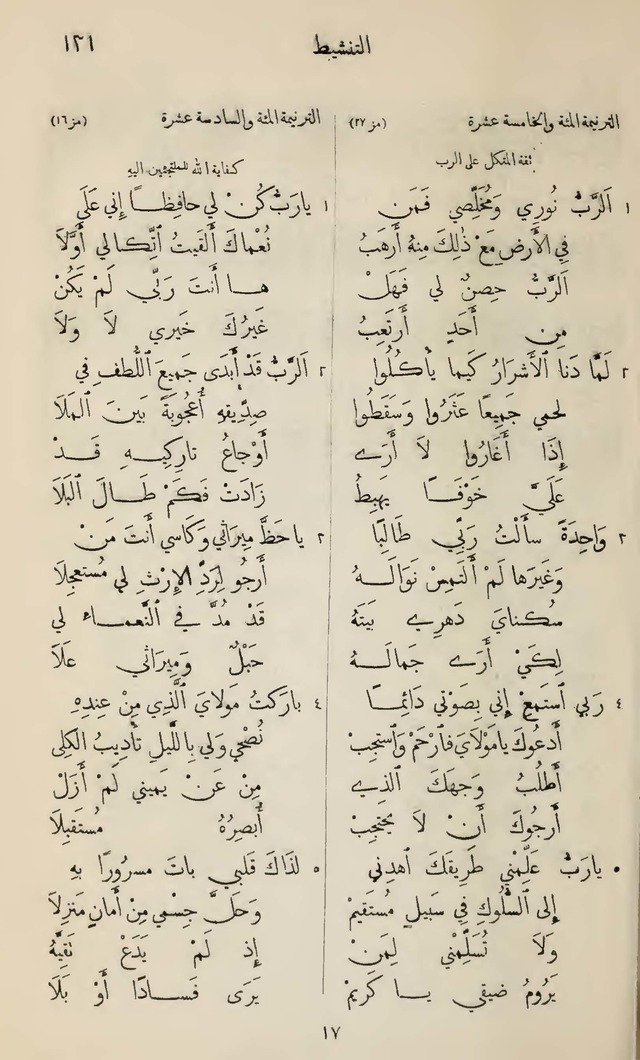 التنشيط
١٣١
الترنيمة المئة والخامسة عشرة (مز ٢٧)
ثقة المتكل على الرب
١ اَلرَّبُّ نُورِي وَمُخَلِّصِي فَمَن
فِي الأَرضِ مَعْ ذٰلِكَ مِنهُ أَرهَبُ
اَلرَّبُّ حِصنٌ لي فَهَلْ
مِن أَحَدٍ أَرتَعِبُ
٢ لَمَّا دَنا الأَشرَارُ كَيما يأكُلُوا
لحمي جَميعًا عَثَرُوا وَسَقَطُوا
إِذَا أَغَارُوا لا أَرَى
عَلَيَّ خَوْفًا يَهبِطُ
٣ وَاحِدَةً سأَلْتُ رَبِّي طَالِبًا
وَغَيرَها لَمْ أَلتَمِسْ نَوَالَهُ
سُكنايَ دَهرِي بَيتَهُ
لِكَيْ أَرَى جَمالَهُ
٤ رَبي اَستَمِعْ إِني بِصَوْتي دَائِمًا
أَدعُوكَ يا مَوْلايَ فَارْحَمْ وَاَستَجِبْ
أَطلُبُ وَجهَكَ الَّذِي
أَرجُوكَ أَنْ لا يَحتَجِبْ
٥ يارَبُّ عَلِّمْنِي طَرِيقَكَ اَهدِني
إِلى السُّلُوكِ فِي سَبيلٍ مُستَقِيمْ
وَلا تُسَلِّمْني لِمَنْ
يَرُومُ ضيقي يا كَرِيمْ
الترنيمة المئة والسادسة عشرة (مز ١٦)
كفاية الله للملتجئين اليه
١ يارَبُّ كُنْ لي حافِظًا إِني عَلَى
نُعْمَاكَ أَلقَيتُ اَتِّكالي أَوَّلاَ
ها أَنتَ رَبِّي لَمْ يَكُنْ
غَيرُكَ خَيرِي لاَ وَلاَ
٢ اَلرَّبُّ قَدْ أَبدَى جَميعَ اللُّطفِ في
صِدِّيقِهِ أُعْجُوبَةً بَينَ المَلاَ
أَوْجاعُ تارِكيهِ قَدْ
زَادَتْ فَكَمْ طَالَ البَلاَ
٣ ياحَظَّ مِيرَاثي وَكَاسي أَنتَ مَنْ
أَرجُو لِرَدِّ الإِرْثِ لي مُستعجِلاَ
قَدْ مُدَّ في النَّعماءِ لي
حَبْلٌ وَمِيرَاثي عَلاَ
٤ بارَكتُ مَولايَ الَّذِي مِنْ عِندِهِ
نُصْحي وَلي بِاللَّيلِ تأدِيبُ الكِلى
مِنْ عَنْ يَميني لَمْ أَزَلْ
أُبصِرُهُ مُستَقبِلاَ
٥ لذَاكَ قَلبي باتَ مسرُورًا بهِ
وَحَلَّ جِسْمي مِنْ أَمانٍ مَنزِلاَ
إِذ لَمْ يَدَعْ تَقِيَّهُ
يَرَى فَسادًا أَوْ بَلاَ
١٧